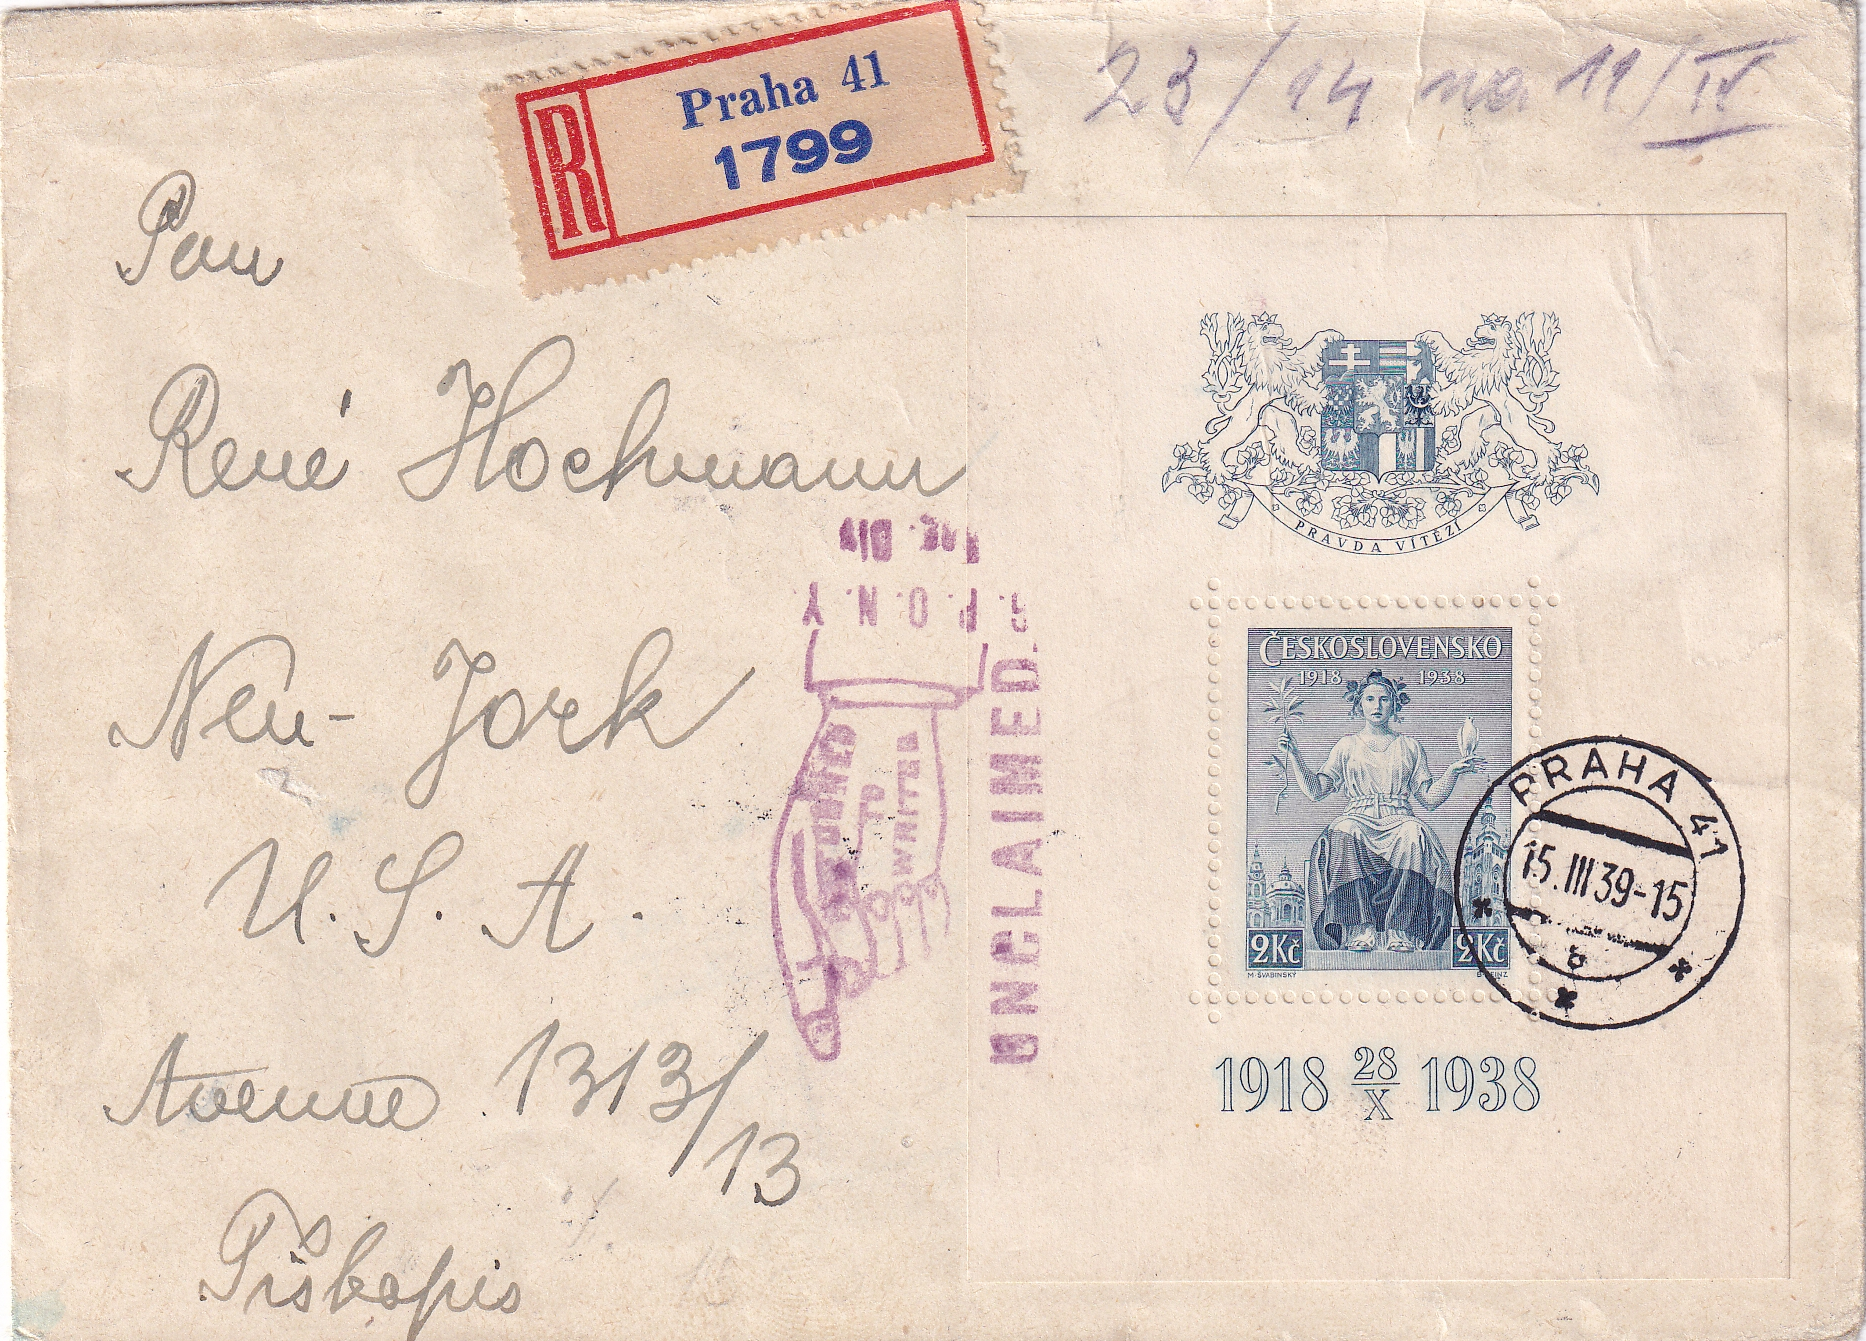 23/14 na 11/IV
R
Praha 41
1799
Pan
René Hochmann
Neu-Jork
U.S.A.
Avenue 1313/13
Tiskopis
G.P.O.N.Y.
Reg. Div
RETURNED
TO
WRITER
UNCLAIMED.
PRAVDA VÍTĚZÍ
ČESKOSLOVENSKO
1918 1938
2Kč 2Kč
M·ŠVABINSKÝ B·HEINZ
PRAHA 41
15.III39-15
1918 28/X 1938